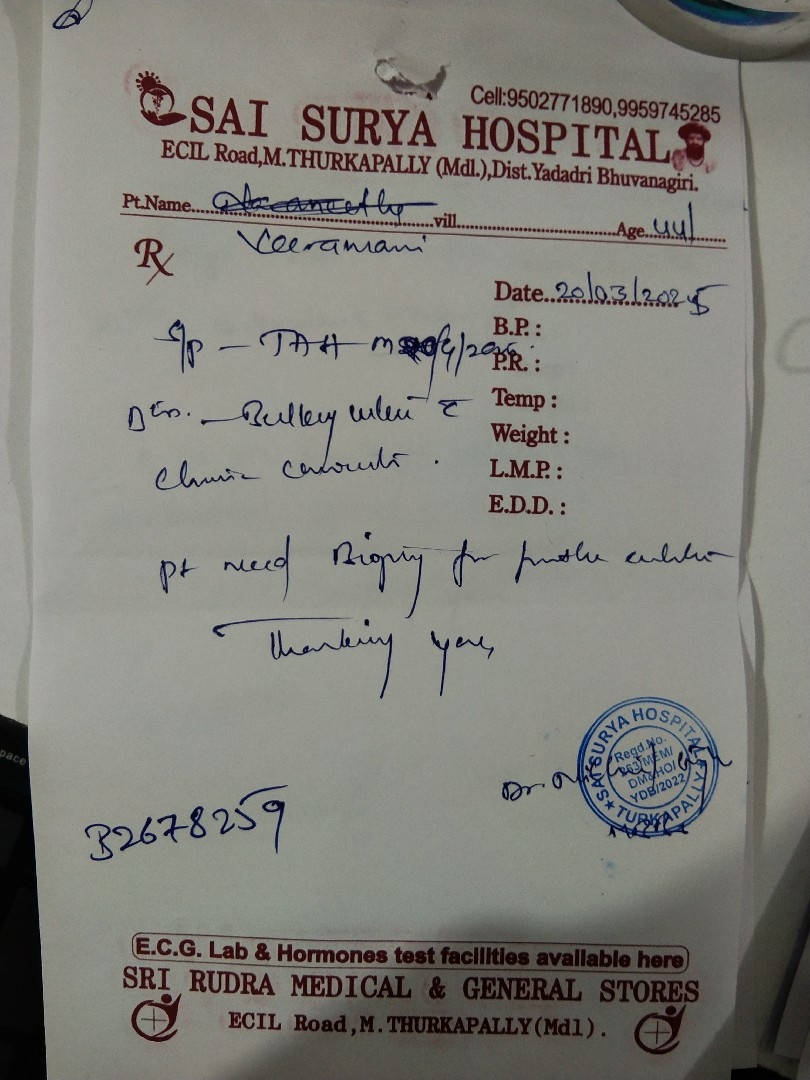 Cell:9502771890,9959745285
SAI SURYA HOSPITAL
ECIL Road,M.THURKAPALLY (Mdl.),Dist.Yadadri Bhuvanagiri.
Pt.Name.......vill.......Age 44/
Veeramani
Rx
Date 20/03/2025
B.P. :
S/p - TAH
P.R. :
Temp :
- Bulky
Weight :
L.M.P. :
E.D.D. :
pt need Biopsy for
Thanking you,
SAI SURYA HOSPITAL
Regd.No.
DM&HO/
YDB/2022
★ TURKAPALLY ★
Dr
B2678259
E.C.G. Lab & Hormones test facilities available here
SRI RUDRA MEDICAL & GENERAL STORES
ECIL Road,M.THURKAPALLY(Mdl).